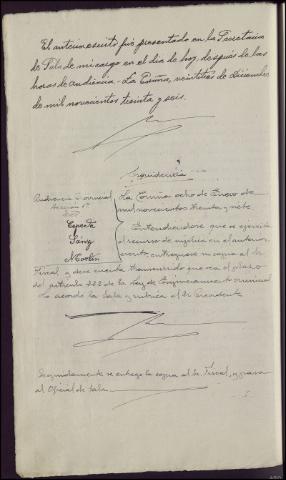 El antecin escrito fué presentado en la Secretaría
de Sala de mi cargo en el dia de hoy, después de las
horas de audiencia.- La Coruña, veintitres de diciembre
de mil novecientos treinta y seis.
Providencia
Audiencia Provincial
La Coruña ocho de Enero de
mil novecientos treinta y siete
Cepeda
Sanz
Martín
Entendiendose que se ejercita
el recurso de suplica en el anterior
escrito, entreguese su copia al Sr.
Fiscal, y dese cuenta transcurrido que sea el plazo
del articulo 222 de la Ley de Enjuiciamiento criminal
Lo acordó la Sala y rubrica el Sr Presidente
Seguidamente se entrega la copia al Sr. Fiscal, y pasa
al Oficial de Sala.